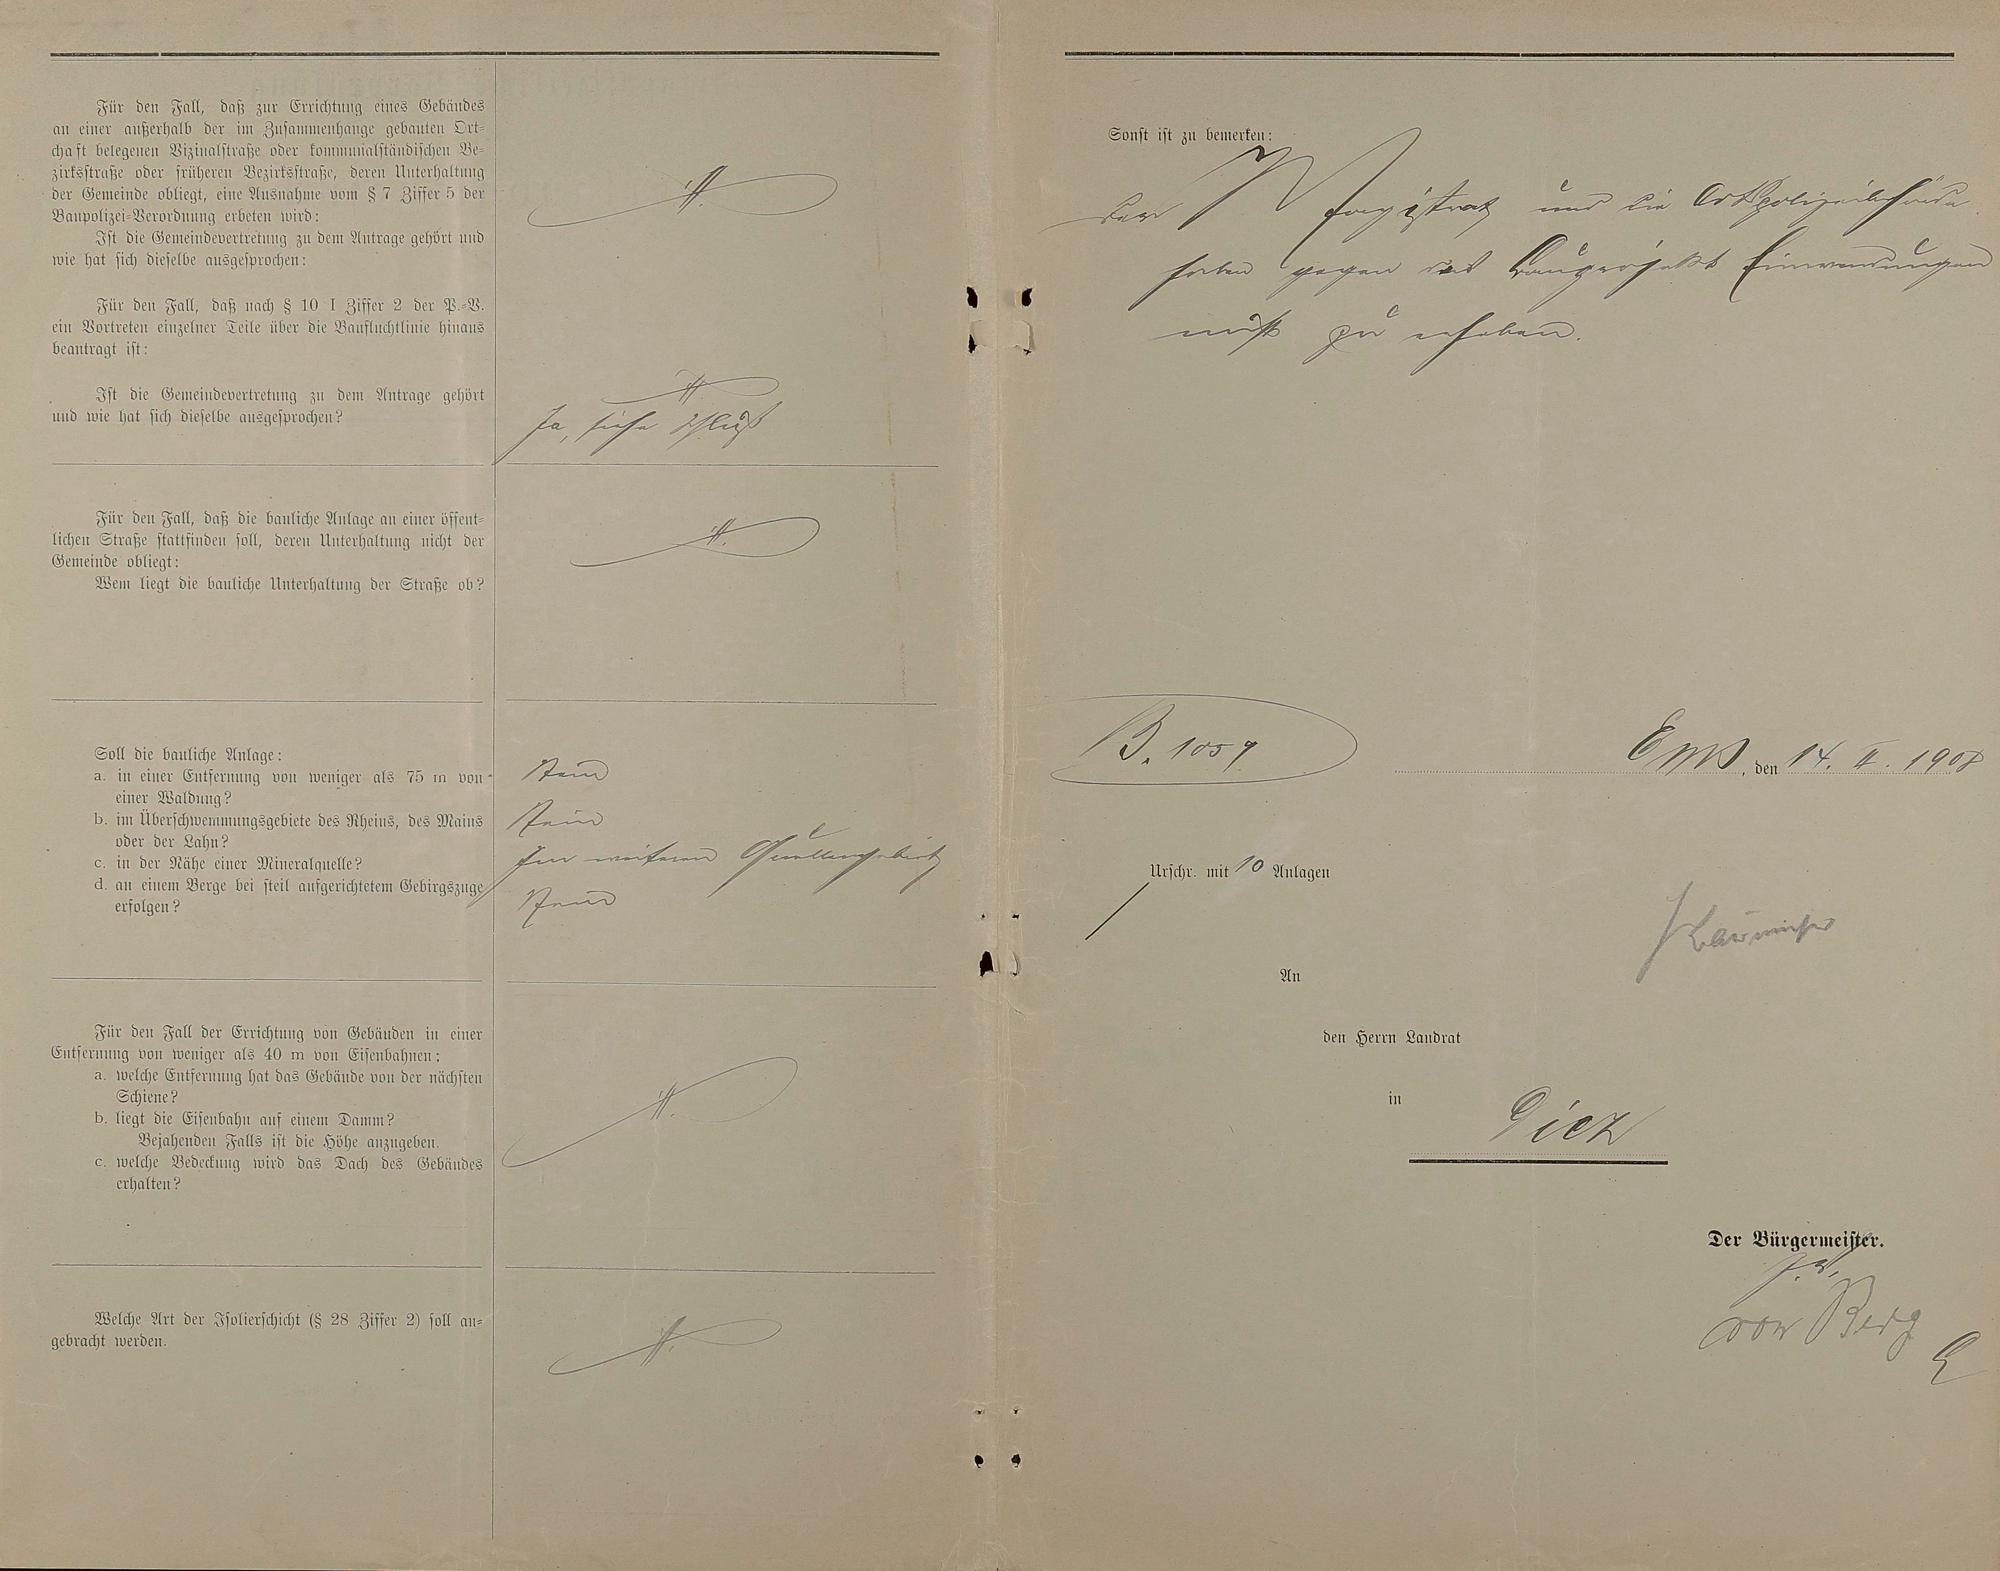 Für den Fall, daß zur Errichtung eines Gebäudes
an einer außerhalb der im Zusammenhange gebauten Ort-
chaft belegenen Vizinalstraße oder kommunalständischen Be-
zirksstraße oder früheren Bezirksstraße, deren Unterhaltung
der Gemeinde obliegt, eine Ausnahme vom § 7 Ziffer 5 der
Baupolizei-Verordnung erbeten wird:
Ist die Gemeindevertretung zu dem Antrage gehört und
wie hat sich dieselbe ausgesprochen:
Für den Fall, daß nach § 10 I Ziffer 2 der P.-V.
ein Vortreten einzelner Teile über die Baufluchtlinie hinaus
beantragt ist:
Ist die Gemeindevertretung zu dem Antrage gehört
und wie hat sich dieselbe ausgesprochen?
Ja, siehe Schluß
Für den Fall, daß die bauliche Anlage an einer öffent-
lichen Straße stattfinden soll, deren Unterhaltung nicht der
Gemeinde obliegt:
Wem liegt die bauliche Unterhaltung der Straße ob?
Soll die bauliche Anlage:
a. in einer Entfernung von weniger als 75 m von
einer Waldung?
Nein
b. im Überschwemmungsgebiete des Rheins, des Mains
oder der Lahn?
Nein
c. in der Nähe einer Mineralquelle?
Im weiteren Quellengebiet
d. an einem Berge bei steil aufgerichtetem Gebirgszuge
erfolgen?
Nein
Für den Fall der Errichtung von Gebäuden in einer
Entfernung von weniger als 40 m von Eisenbahnen:
a. welche Entfernung hat das Gebäude von der nächsten
Schiene?
b. liegt die Eisenbahn auf einem Damm?
Bejahenden Falls ist die Höhe anzugeben.
c. welche Bedeckung wird das Dach des Gebäudes
erhalten?
Welche Art der Isolierschicht (§ 28 Ziffer 2) soll an-
gebracht werden.
Sonst ist zu bemerken:
Der Magistrat und die Ortspolizeibehörde
haben gegen das Bauprojekt Einwendungen
nicht zu erheben.
B. 1059
Ems, den 14. II. 1908
Urschr. mit 10 Anlagen
An
den Herrn Landrat
in
Diez
Der Bürgermeister.
J. V.
von Berg